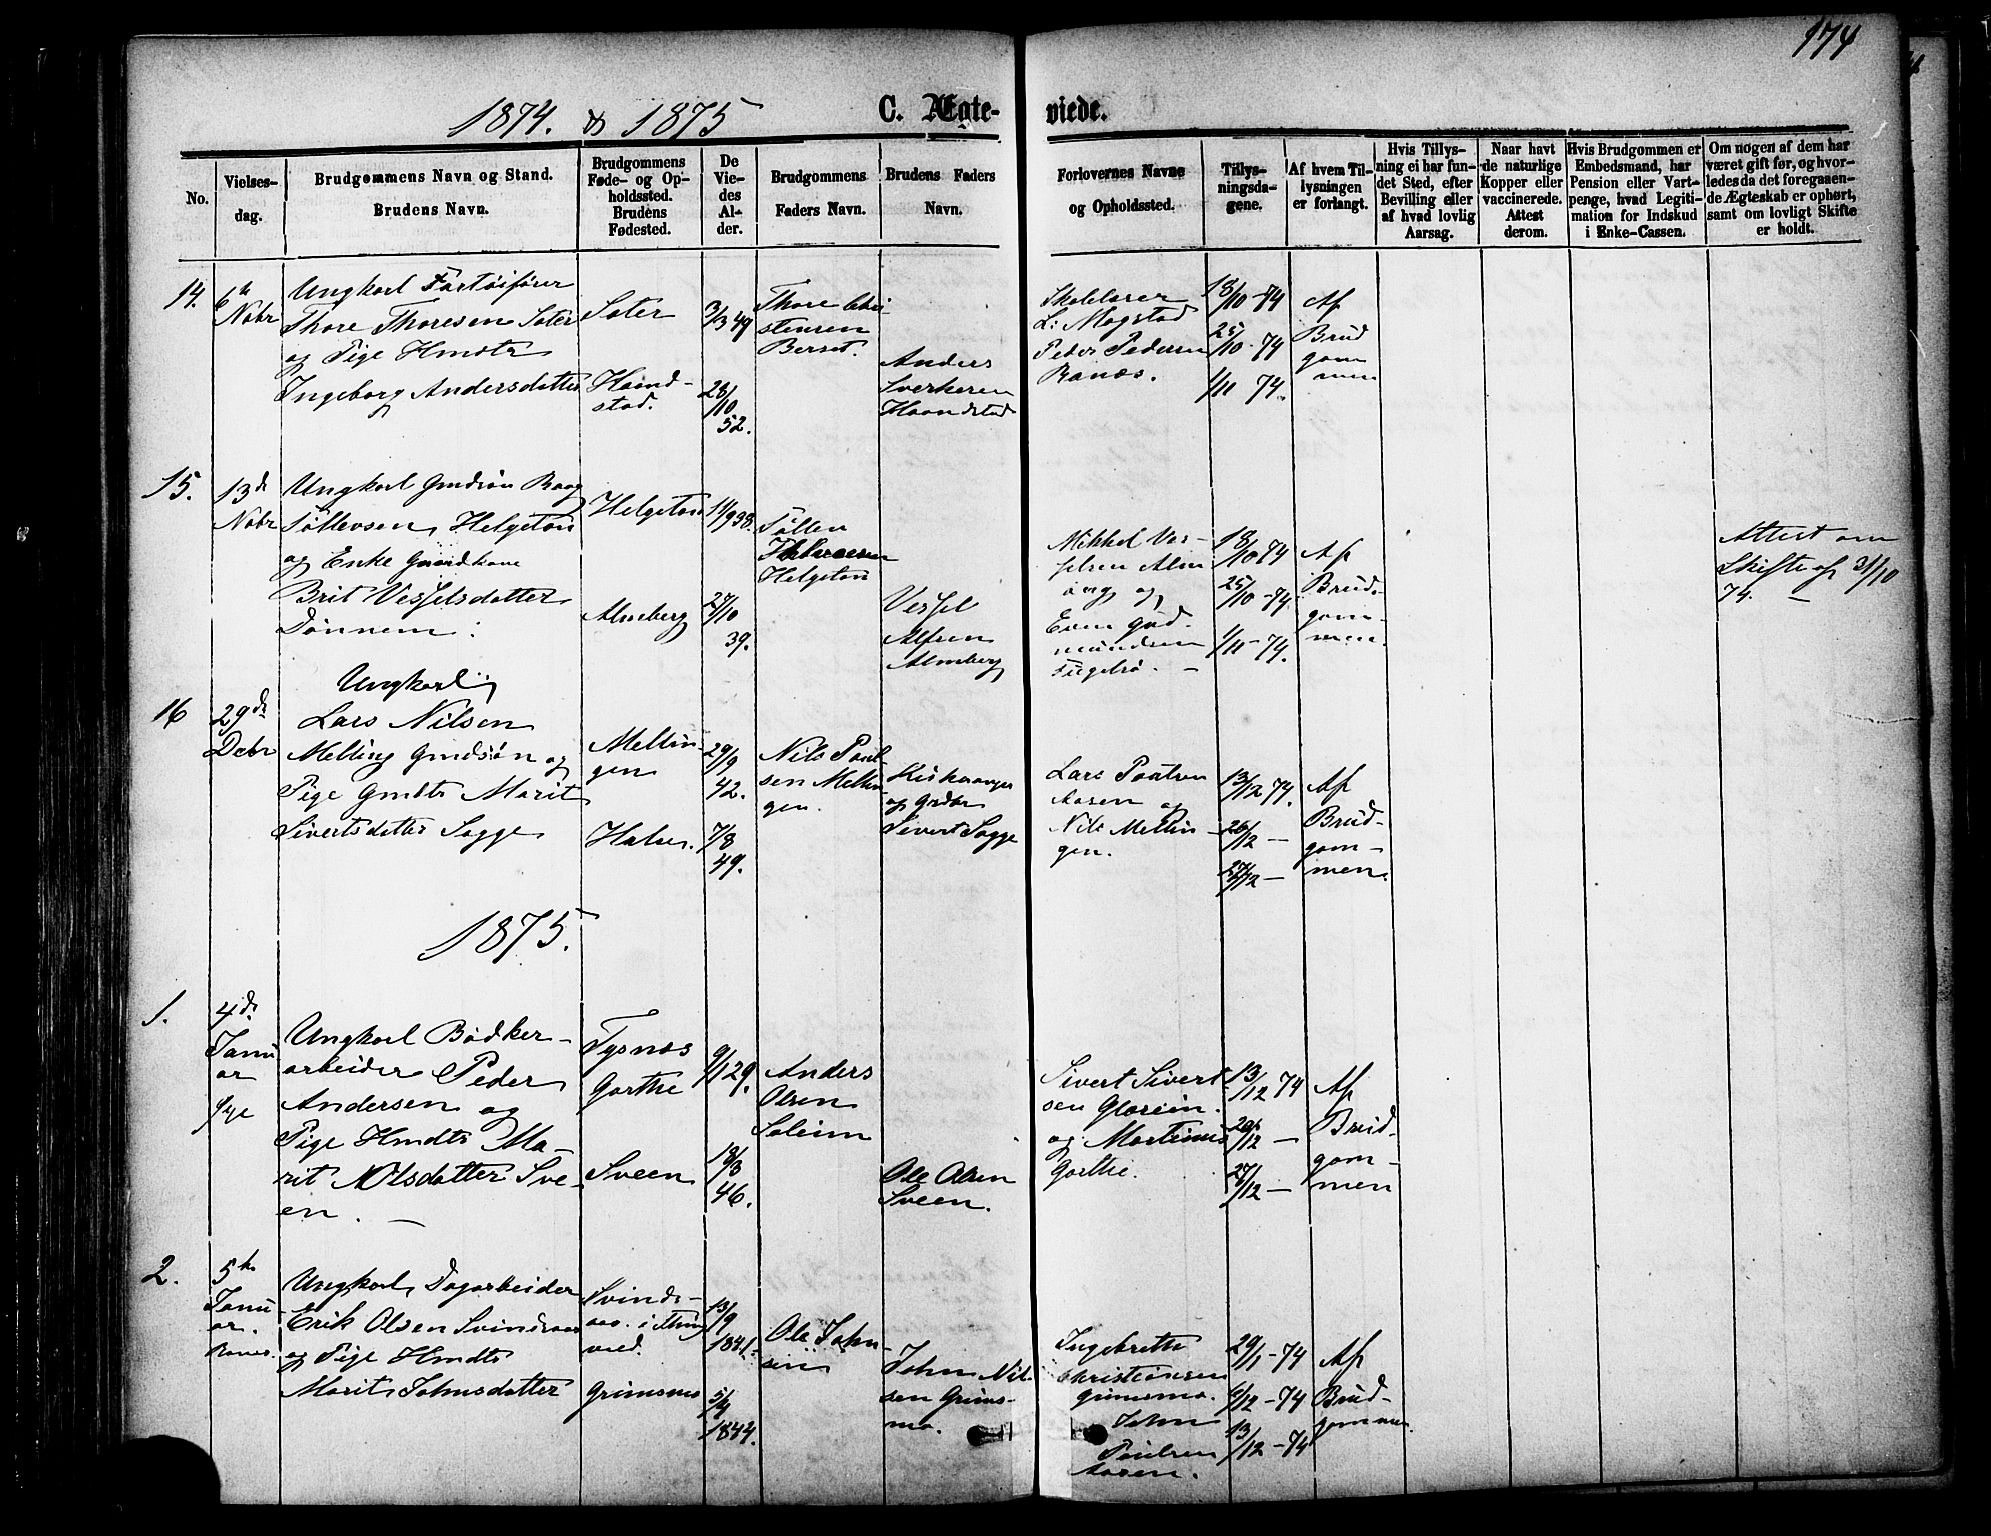 174
1874. & 1875
C. Ægte-
viede.
No.
Vielses-
dag.
Brudgommens Navn og Stand.
Brudens Navn.
Brudgommens
Føde- og Op-
holdssted.
Brudens
Fødested.
De
Vie-
des
Al-
der.
Brudgommens
Faders Navn.
Brudens Faders
Navn.
Forlovernes Navne
og Opholdssted.
Tillys-
ningsda-
gene.
Af hvem Til-
lysningen
er forlangt.
Hvis Tillys-
ning ei har fun-
det Sted, efter
Bevilling eller
af hvad lovlig
Aarsag.
Naar havt
de naturlige
Kopper eller
vaccinerede.
Attest
derom.
Hvis Brudgommen er
Embedsmand, har
Pension eller Vart-
penge, hvad Legiti-
mation for Indskud
i Enke-Cassen.
Om nogen af dem har
været gift før, og hvor-
ledes da det foregaaen-
de Ægteskab er ophørt,
samt om lovligt Skifte
er holdt.
14.
6te
Nobr
Ungkarl Fartøifører
Thore Thoresen Soter
og Pige Hmdtr
Ingeborg Andersdatter
Soter
Haand-
stad.
3/3 49
28/10
52.
Thore Chri-
stensen
Berset.
Anders
Sverkesen
Haandstad
Skolelærer
L: Magstad
Peder Pedersen
Ranæs.
18/10 - 74
25/10 - 74
1/11 74.
Af
Brud
gom
men
15.
13de
Nobr
Ungkarl Gmdsøn Roag
Tøllevsen Helgeton
og Enke Gaardkone
Brit Vesselsdatter
Dønnem.
Helgeton
Almberg
11/9 38.
27/10
39.
Tøllev
Helgeton
Vessel
Alfsen
Almberg
Mikkel Ves-
selsen Alm
og
Even Gud-
mundsen
18/10 74
25/10 - 74.
1/11 - 74.
Af
Brud-
gom-
men.
Attest om
Skifte af 31/10
74. —
16
29de
Debr
Ungkarl
Lars Nilsen
Melling Gmdsøn og
Pige Gmdtr Marit
Sivertsdatter Sogge
Mellin-
gen
Halse.
29/9
42.
7/8
49.
Nils Poul-
sen Mellin-
gen.
Kirkesanger
og Grdbr
Sivert Sogge
Lars Poulsen
Aasen og
Nils Mellin
gen.
13/12 74.
26/12 —
27/12 —
Af
Brud-
gom-
men.
1875.
1.
4de
Janu
ar
Øye
Ungkarl Bødker-
arbeider Peder
Andersen og
Pige Hmdtr Ma-
rit Olsdatter Sve-
en. —
Tysnæs
Gorthe
Sveen
9/1 29.
18/3
46.
Anders
Olsen
Soleim
Ole Olsen
Sveen.
Sivert Sivert
sen Glærem.
og Martinus
Gorthe.
13/12 74
26/12 —
27/12 —
Af
Brud-
gom-
men
2.
5te
Janu
ar.
Ranes.
Ungkarl, Dagarbeider
Erik Olsen Svindsaas
og Pige Hmdtr
Marit Johnsdatter
Svinds-
aas. i Thing
vold.
Grimsmo
13/9
1841.
5/4
1844.
Ole John-
sen
John Nil-
sen Grims-
mo.
Ingebrikt
Christiansen
Grimsmo.
John
Poulsen
Aasen.
29/1 - 74
6/12 - 74
13/12 - 74
Af
Brud-
gommen.